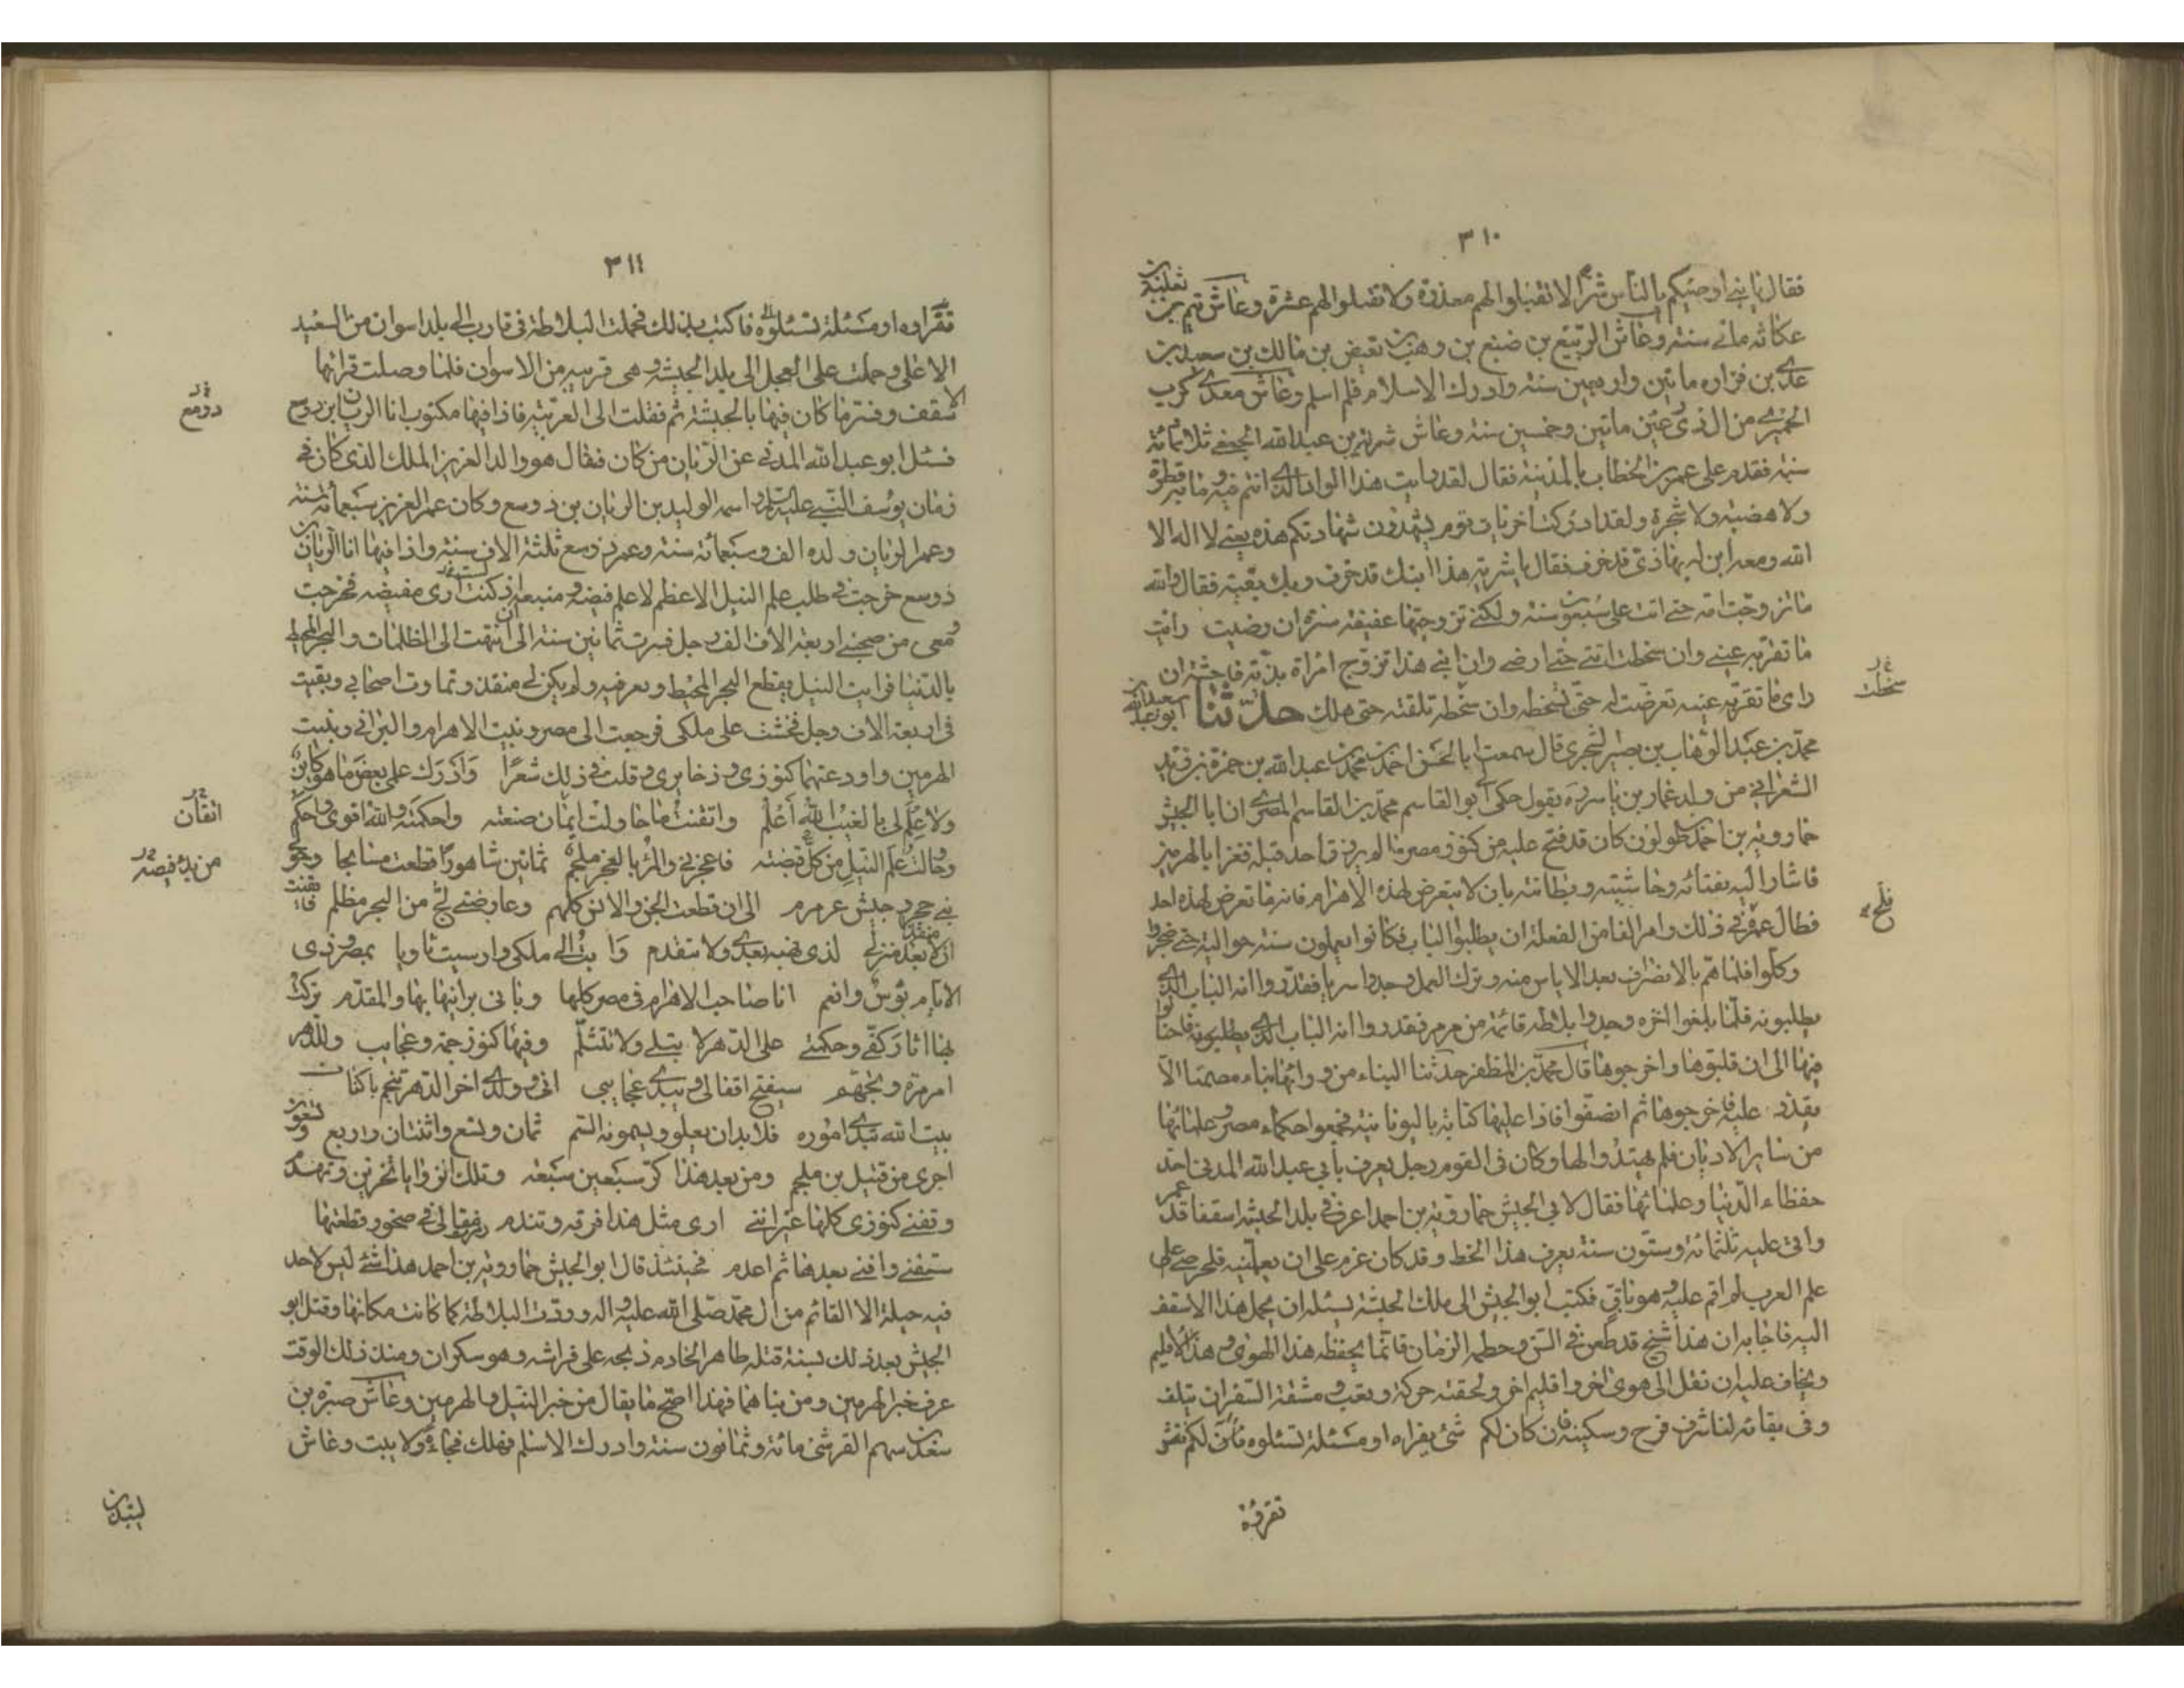 ٣١٠
فقال يا بنى اوصيكم بالناس شرا لا تقبلوا لهم معذرة ولا تقيلوا لهم عثرة وعاش تيم بن ثعلبة بن
عكاثه مائى سنة وعاش الربيع بن ضبع بن وهب بن بغيض بن مالك بن سعيد بن
عدى بن فزاره ماتين واربعين سنة وادرك الاسلام فلم اسلم وعاش معدى كرب
الحميرى من ال ذى رعين ماتين وخمسين سنة وعاش شرية بن عبدالله الجعفى ثلاثمائة
سنة فقدم على عمر بن الخطاب بالمدينة فقال لقد رايت هذا الوادى الذى انتم فيه وما به قطرة
ولا هضبة ولا شجرة ولقد ادركت اخريات قوم يشهدون شهادتكم هذه يعنى لا اله الا
الله ومعه ابن له يهاذى قد خرف فقال يا شرية هذا ابنك قد خرف وبك بقية فقال والله
ما تزوجت امه حتى اتت على سبعون سنة ولكنى تزوجتها عفيفة ستيرة ان رضيت رايت
ما تقر به عينى وان سخطت اتتنى حتى ارضى وان ابنى هذا تزوج امراة بذية فاحشة ان
راى ما تقر به عينه تعرضت له حتى تسخطه وان سخط تلقته حتى هلك حدثنا ابو سعيد عبدالله بن
محمد بن عبد الوهاب بن نصير الشجرى قال سمعت ابا الحسن احمد بن محمد بن عبدالله بن حمزة بن زيد
الشعرانى من ولد عمار بن ياسر ره يقول حكى ابو القاسم محمد بن القاسم المصرى ان ابا الجيش
خمارويه بن احمد بن طولون كان قد فتح عليه من كنوز مصر ما لم يرزق احد قبله فغزا بالهرمين
فاشار اليه ثقتائه وحاشيته وبطانته بان لا يتعرض لهذه الاهرام فانه ما تعرض لهذه احد
فطال عمره فى ذلك وامر الفا من الفعلة ان يطلبوا الباب فكانوا يعملون سنة حواليه حتى ضجروا
وكلوا فلما هم بالانصراف بعد الاياس منه وترك العمل وجدوا سربا فقدروا انه الباب الذى
يطلبونه فلما بلغوا اخره وجدوا بلاطة قائمة من مرمر فقدروا انه الباب الذى يطلبونه فاحتالوا
فيها الى ان قلبوها واخرجوها قال محمد بن المظفر حدثنا البناء من ورائها بناء مصمتا الا
يقدر عليه فاخرجوها ثم انصفوا فاذا عليها كتابة باليونانية فجمعوا حكماء مصر وعلمائها
من ساير الاديان فلم يهتدوا لها وكان فى القوم رجل يعرف بابى عبدالله المدنى احد
حفظاء الدنيا وعلمائها فقال لابى الجيش خمارويه بن احمد اعرف فى بلد الحبشة اسقفا قد عمر
واتى عليه ثلثمائة وستون سنة يعرف هذا الخط وقد كان عزم على ان يعلمنيه فلحرصى على
علم العرب لم اقم عليه وهو باق فكتب ابو الجيش الى ملك الحبشة يسئله ان يحمل هذا الاسقف
اليه فاجابه ان هذا شيخ قد طعن فى السن وحطمه الزمان وانما يحفظه هذا الهوى وهذا الاقليم
ويخاف عليه ان نقل الى هوى اخر واقليم اخر ولحقته حركة وتعب ومشقة السفر ان يتلف
وفى بقائه لنا شرف فرح وسكينة فان كان لكم شئ يقراه او مسئلة تسئلوه
تقرؤه
سخطت
٣١١
تقراوه او مسئلة تسئلوه فاكتب بذلك فحملت البلاطة فى قارب الى بلد اسوان من الصعيد
الاعلى وحملت على العجل الى بلد الحبشة وهى قريبه من الاسوان فلما وصلت قراتها
الاسقف وفسر ما كان فيها بالحبشة ثم نقلت الى العربية فاذا فيها مكتوب انا الريان بن دومع
فسئل ابو عبدالله المدنى عن الريان من كان فقال هو والد العزيز الملك الذى كان فى
زمان يوسف النبى عليه السلام واسمه الوليد بن الريان بن دومع وكان عمر العزيز سبعمائة سنة
وعمر الريان والده الف وسبعمائة سنة وعمر دومع ثلثة الاف سنة واذا فيها انا الريان بن
دومع خرجت فى طلب علم النيل الاعظم لاعلم فيضه ومنبعه اذ كنت ارى مفيضه فخرجت
ومعى من صحبنى اربعة الاف الف رجل فسرت ثمانين سنة الى ان انتهت الى الظلمات والبحر المحيط
بالدنيا فرايت النيل يقطع البحر المحيط ويعرفيه ولم يكن لى منفذ وتماوت اصحابى وبقيت
فى اربعة الاف رجل فخشيت على ملكى فرجعت الى مصر وبنيت الاهرام والبرابى وبنيت
الهرمين واودعتهما كنوزى وذخايرى وقلت فى ذلك شعرا وادرك على بعض ما هو كاين
ولا علم لى بالغيب الله اعلم واتقنت ما حاولت اتقان صنعته واحكمته والله اقوى واحكم
وحاولت علم النيل من كل قصته فاعجزنى والمرء بالعجز ملجم ثمانين شاهورا قطعت مسايحا وحولى
بنى حجر وجيش عرمرم الى ان قطعت الجن والانس كلهم وعارضنى لج من البحر مظلم فايقنت
ان لا منفذ بعد منزلى لذى هيبة بعدى ولا متقدم وابت الى ملكى وارسيت ثاويا بمصر وذى
الايام بوس وانعم انا صاحب الاهرام فى مصر كلها وبانى برانيها بها والمقدم تركت
بها اثار كفى وحكمتى على الدهر لا يتبلى ولا تتثلم وفيها كنوز جمة وعجايب وللدهر
امر مرة وتجهم سيفتح اقفالى ويبدى عجايبى انى ولى اخر الدهر ينجم باكناف
بيت الله تبدى اموره فلا بد ان يعلو ويسمو به السم ثمان وتسع واثنتان واربع وتسعون
اخرى من قتيل بن ملجم ومن بعد هذا كر سبعين سبعة وتلك البرايا تخر تين وتهدم
وتفنى كنوزى كلها غير اننى ارى مثل هذا فرقه وتندم رمزت مقالى فى صخور قطعتها
ستفنى وافنى بعدها ثم اعدم فحينئذ قال ابو الجيش خمارويه بن احمد هذا شئ ليس لاحد
فيه حيلة الا القائم من ال محمد صلى الله عليه واله وردت البلاطة كما كانت مكانها وقتل ابو
الجيش بعد ذلك بسنة قتله طاهر الخادم ذبحه على فراشه وهو سكران ومنذ ذلك الوقت
عرف خبر الهرمين ومن بناهما فهذا اصح ما يقال من خبر النيل والهرمين وعاش صبرة بن
سعد بن سهم القرشى مائة وثمانون سنة وادرك الاسلم فهلك فجاءة ولا بيت وعاش
دومع
اتقان
لبيد بن